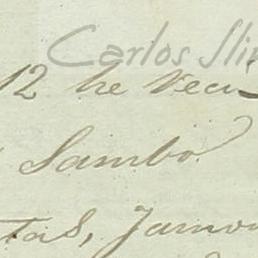 Carlos Sli
12 he Veci
Sambo
tas, Jamo